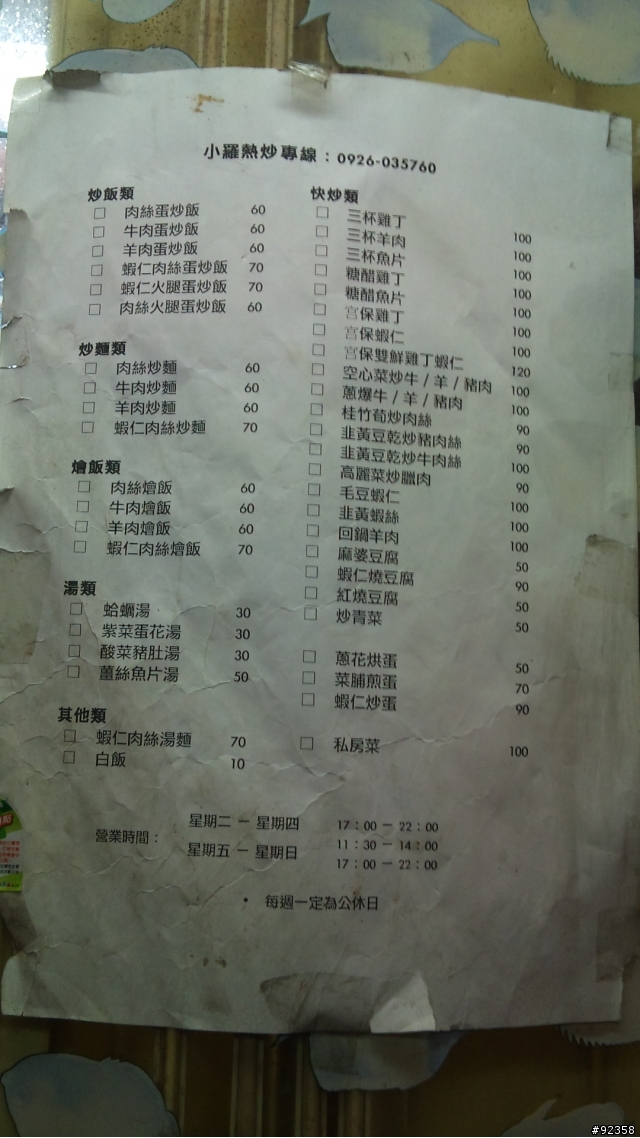 小羅熱炒專線：0926-035760
炒飯類
□ 肉絲蛋炒飯 60
□ 牛肉蛋炒飯 60
□ 羊肉蛋炒飯 60
□ 蝦仁肉絲蛋炒飯 70
□ 蝦仁火腿蛋炒飯 70
□ 肉絲火腿蛋炒飯 60
炒麵類
□ 肉絲炒麵 60
□ 牛肉炒麵 60
□ 羊肉炒麵 60
□ 蝦仁肉絲炒麵 70
燴飯類
□ 肉絲燴飯 60
□ 牛肉燴飯 60
□ 羊肉燴飯 60
□ 蝦仁肉絲燴飯 70
湯類
□ 蛤蠣湯 30
□ 紫菜蛋花湯 30
□ 酸菜豬肚湯 30
□ 薑絲魚片湯 50
其他類
□ 蝦仁肉絲湯麵 70
□ 白飯 10
快炒類
□ 三杯雞丁 100
□ 三杯羊肉 100
□ 三杯魚片 100
□ 糖醋雞丁 100
□ 糖醋魚片 100
□ 宮保雞丁 100
□ 宮保蝦仁 100
□ 宮保雙鮮雞丁蝦仁 120
□ 空心菜炒牛/羊/豬肉 100
□ 蔥爆牛/羊/豬肉 100
□ 桂竹荀炒肉絲 90
□ 韭黃豆乾炒豬肉絲 90
□ 韭黃豆乾炒牛肉絲 100
□ 高麗菜炒臘肉 90
□ 毛豆蝦仁 100
□ 韭黃蝦絲 100
□ 回鍋羊肉 100
□ 麻婆豆腐 50
□ 蝦仁燒豆腐 90
□ 紅燒豆腐 50
□ 炒青菜 50
□ 蔥花烘蛋 50
□ 菜脯煎蛋 70
□ 蝦仁炒蛋 90
□ 私房菜 100
營業時間：
星期二 － 星期四 17：00 － 22：00
星期五 － 星期日 11：30 － 14：00
17：00 － 22：00
• 每週一定為公休日
#92358